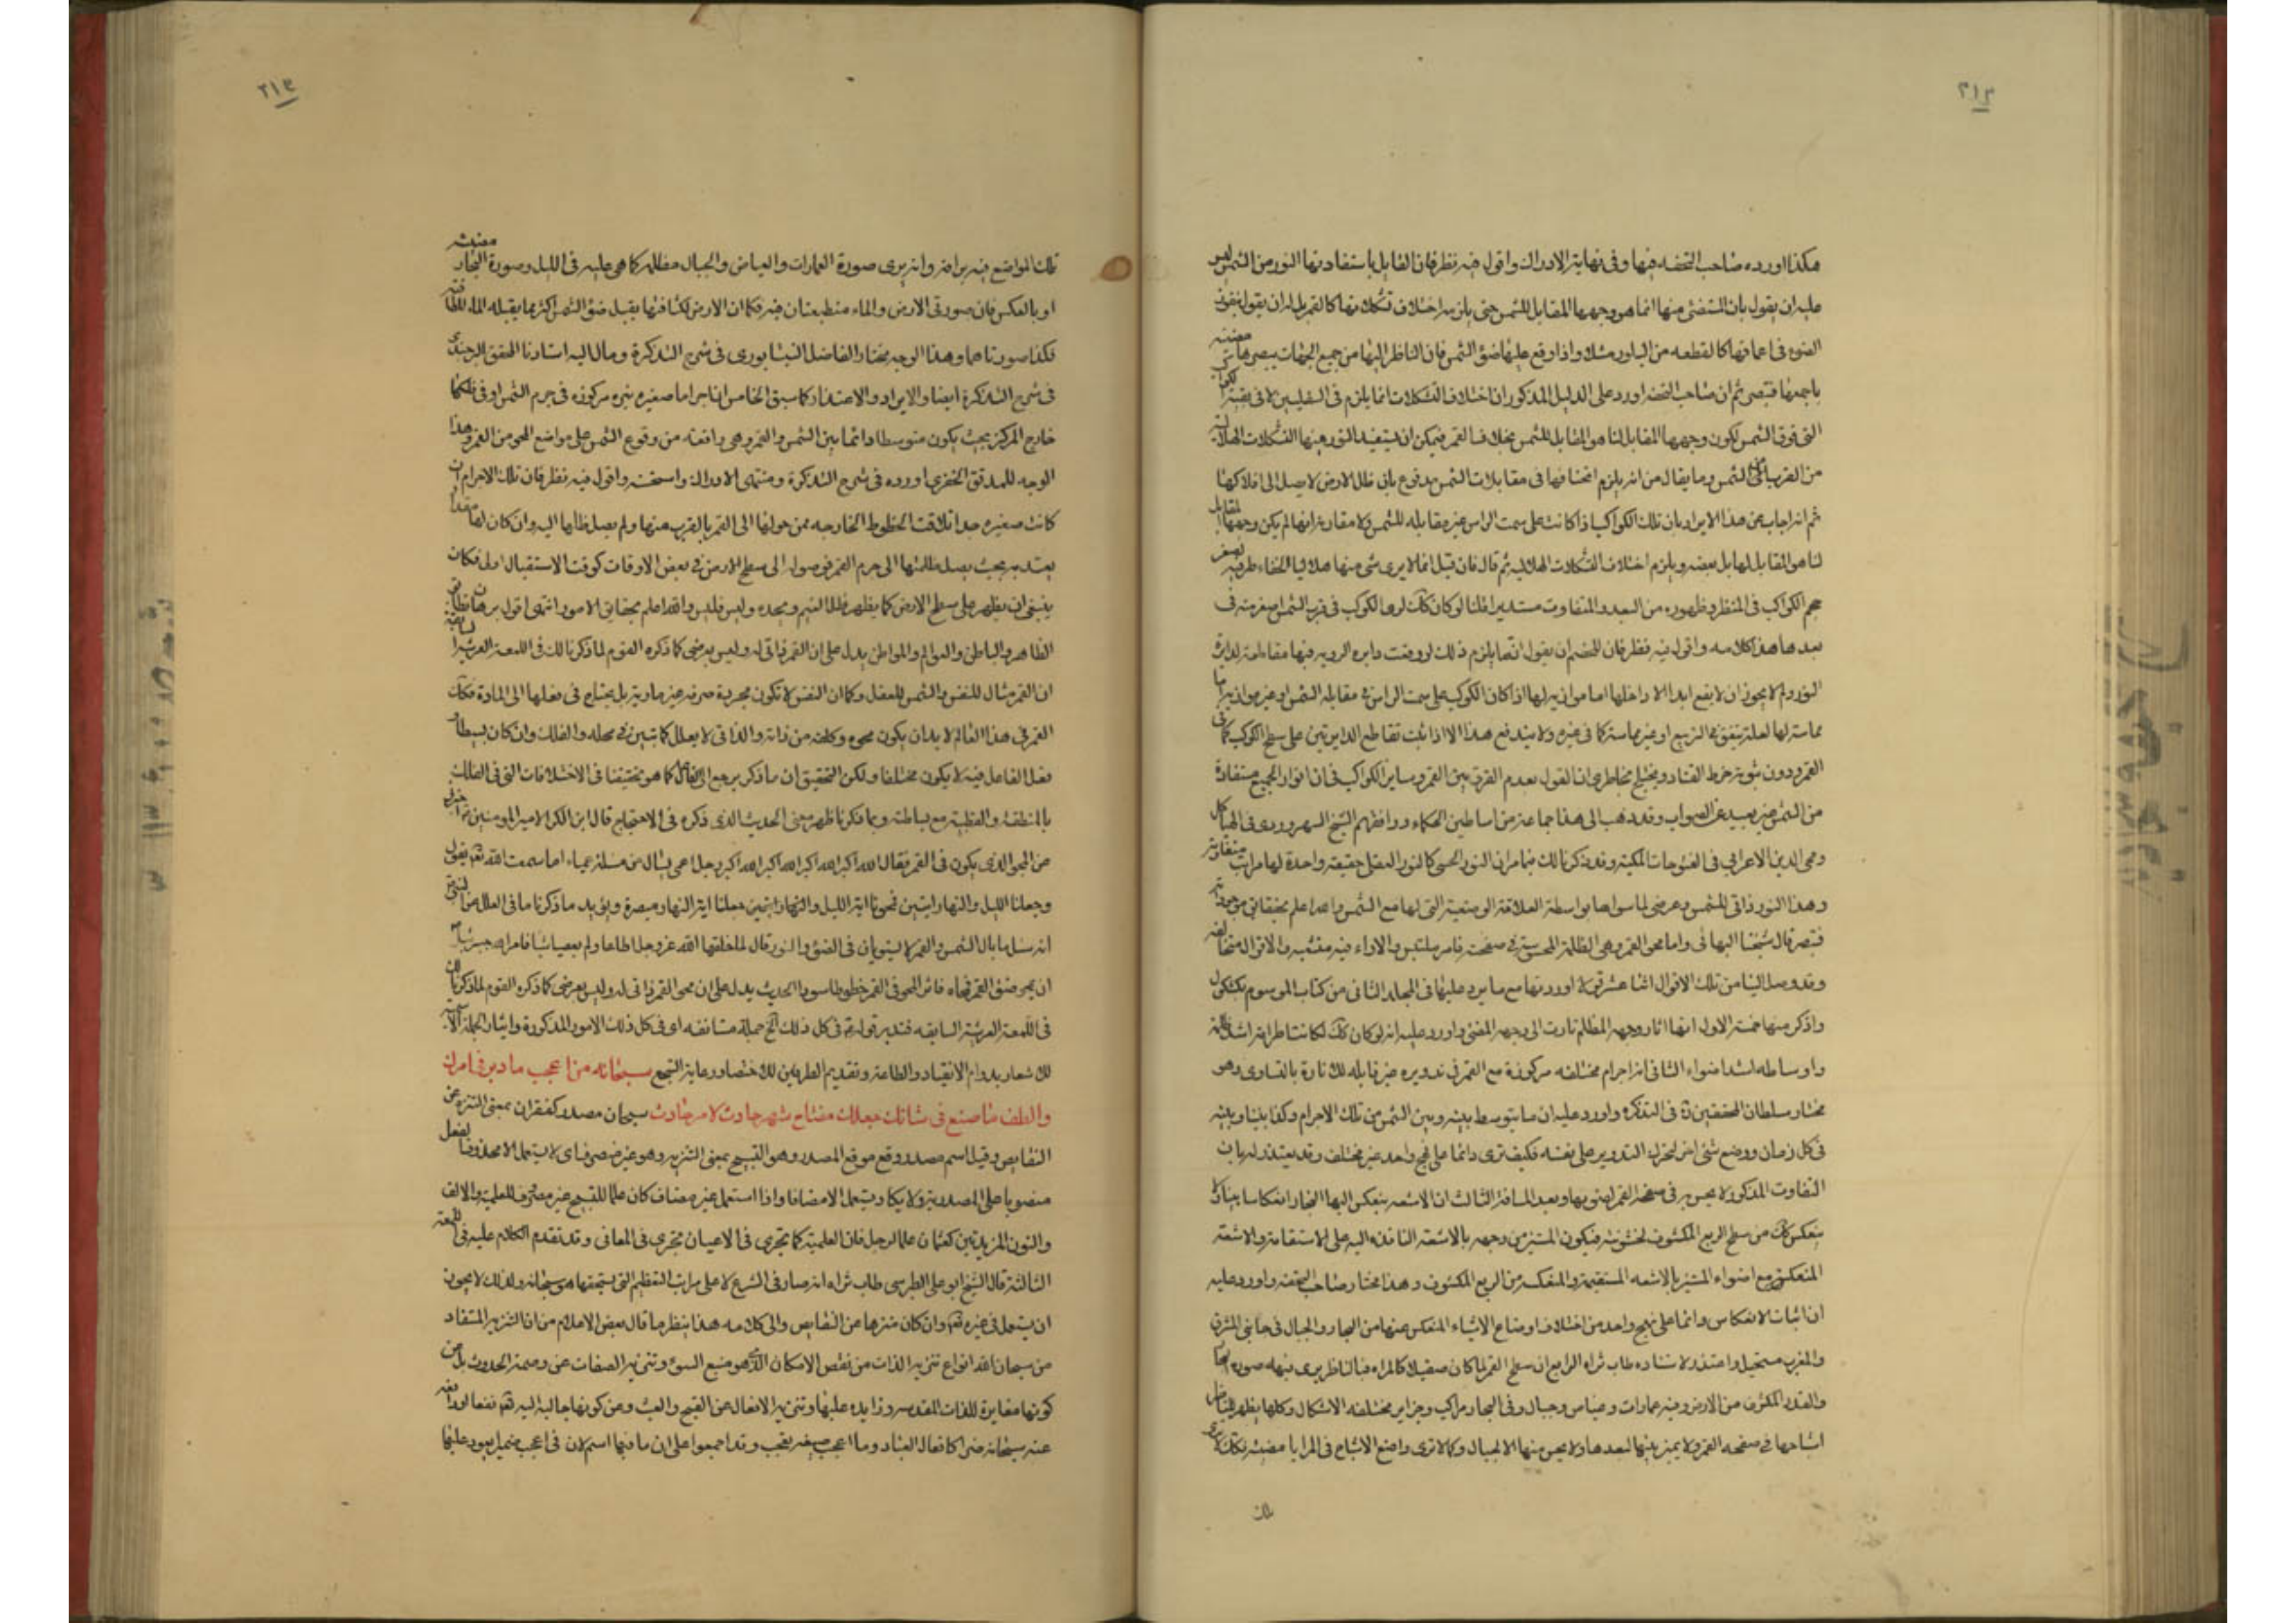 ٢١٢
هكذا اورده صاحب التحفه فيها وفى نهاية الادراك واقول فيه نظر فان القايل باستفادتها النور من الشمس ليس
عليه ان يقول بان المستضئ منها انما هو وجهها المقابل للشمس حتى يلزمه اختلاف تشكلاتها كالقمر بل له ان يقول بنفوذ
الضوء فى اعماقها كالقطعه من البلور مثلا واذا وقع عليها ضوء الشمس فان الناظر اليها من جميع الجهات يبصرها مضيئه
باجمعها فتبصر ثم ان صاحب التحفه اورد على الدليل المذكور ان اختلاف التشكلات انما يلزم فى السفليين لا فى بقية الكواكب
التى فوق الشمس لكون وجهها المقابل لنا هو المقابل للشمس بخلاف القمر فيمكن ان يستفيد النور منها التشكلات الهلالية
من القرب الى الشمس وما يقال من انه يلزم انخسافها فى مقابلات الشمس مدفوع بان ظل الارض لا يصل الى افلاكها
ثم انه اجاب عن هذا الايراد بان تلك الكواكب اذا كانت على سمت الراس غير مقابله للشمس ولا مقارنة لها لم يكن وجهها المقابل
لنا هو المقابل لها بل بعضه ويلزم اختلاف التشكلات الهلاليه ثم قال فان قيل انما لا يرى شئ منها هلاليا لخفاء طرفيه لصغر
حجم الكواكب فى المنظر وظهوره من البعد المتفاوت مستديرا قلنا لو كان كذلك لرؤى الكوكب فى قرب الشمس اصغر منه فى
بعدها هذا كلامه واقول فيه نظر فان للخصم ان يقول انما يلزم ذلك لو وقعت دايره الرويه فيها مقاطعة لدايرة
النور ولم لا يجوز ان لا يقع ابدا الا داخلها اما موازيه لها اذا كان الكوكب على سمت الراس فى مقابله الشمس او غير موازيه اما
مماسة لها لعلة يتفق فى التربيع او غير مماسة كما فى غيره ولا يندفع هذا الا اذا ثبت تقاطع الدايرتين على سطح الكوكب كما فى
القمر ودون ثبوته خرط القتاد ويختلج بخاطرى ان القول بعدم الفرق بين القمر وساير الكواكب فى ان انوار الجميع مستفادة
من الشمس غير بعيد عن الصواب وقد ذهب الى هذا جماعة من اساطين الحكماء ووافقهم الشيخ السهروردى فى الهياكل
ومحى الدين الاعرابى فى الفتوحات المكية وقد ذكرنا لك فيما مر ان النور الحسى كالنور العقلى حقيقة واحدة لها مراتب متفاوتة
وهذا النور ذاتى للشمس وعرضى لما سواها بواسطة العلاقة الوضعية التى لها مع الشمس والله اعلم بحقايق موجوداته
فتبصر قال شيخنا البهائى واما محو القمر وهى الظلمة المحسوسة فى صفحته فامر ملتبس والاراء فيه متشعبه والاقوال متخالفه
وقد وصل الينا من تلك الاقوال اثنا عشر قولا اوردتها مع ما يرد عليها فى المجلد الثانى من كتاب الموسوم بكشكول
واذكر منها خمسة الاول انها اثار وجهه المظلم تادت الى وجهه المضئ واورد عليه انه لو كان كذلك لكانت اطرافه اشد ظلمة
واوساطه اشد اضواء الثانى انه اجرام مختلفه مركوزة مع القمر فى تدويره غير قابله للانارة بالتساوى وهو
مختار سلطان المحققين فى التذكره واورد عليه ان ما يتوسط بينه وبين الشمس من تلك الاجرام وكذا بيننا وبينه
فى كل زمان ووضع شئ اخر لتحرك التدوير على نفسه فكيف ترى دائما على نهج واحد غير مختلف وقد يعتذر له بان
التفاوت المذكور لا يحس به فى صفحة القمر لصغرها وبعد المسافة الثالث ان الاشعه تنعكس اليها البخار انعكاسا بينا ولا
تنعكس كذلك من سطح الربع المكشوف لخشونته فيكون المستنير من وجهه بالاشعة النافذه اليه على الاستقامة والاشعة
المنعكسة مع اضواء المستنير بالاشعه المستقيمة والمنعكسه من الربع المكشوف وهذا مختار صاحب التحفه واورد عليه
ان اثبات الانعكاس دائما على نهج واحد من اختلاف اوضاع الاشياء المنعكس عنها من البحار والجبال فى جانبى المشرق
والمغرب مستحيل واعتذر لاستاده طاب ثراه الرابع ان سطح القمر لما كان صقيلا كالمراه فالناظر يرى فيه صورة البحار
والقدر المكشوف من الارض وفيه عمارات وغياض وجبال وفى البحار مراكب وجزاير مختلفه الاشكال وكلها يظهر للناظر
اشباحها فى صفحه القمر ولا يميز بينها لبعدها ولا يحس منها الا بخيال وكما لا ترى واضع الاشباح فى المرايا مضيئه فكذلك
تلك
٢١٣
تلك المواضع فيه براقة وانه يرى صورة العمارات والغياض والجبال مظلمة كما هى عليه فى الليل وصورة البحار مضيئه
او بالعكس فان صورتى الارض والماء منطبعتان فيه فكما ان الارض لكثافتها يقبل ضوء الشمس اكثر مما يقبله الماء للطافته
فكذا صورتاهما وهذا الوجه مختار الفاضل النيشابورى فى شرح التذكرة ومال اليه استادنا المحقق البرجندى
فى شرح التذكرة ايضا والايراد والاعتذار كما سبق الخامس انا اجراما صغيره نيره مركوزه فى جرم الشمس او فى فلكها
خارج المركز بحيث يكون متوسطا دائما بين الشمس والقمر وهى مانعة من وقوع الشمس على مواضع المحو من القمر وهذا
الوجه للمدقق الخفرى اورده فى شرح التذكرة ومنتهى الادراك واستحسنه واقول فيه نظر فان تلك الاجرام ان
كانت صغيره جدا تلاقت الخطوط الخارجه من حولها الى القمر بالقرب منها ولم يصل ظلها اليه وان كان لها مقدار
يعتد به بحيث يصل ظلها الى جرم القمر فوصوله الى سطح الارض فى بعض الاوقات كوقت الاستقبال اولى فكان
ينبغى ان يظهر على سطح الارض كما يظهر ظل الغيم ونحوه وليس فليس والله اعلم بحقايق الامور انتهى اقول برهان تطابق
الظاهر والباطن والعوالم والمواطن يدل على ان القمر ذاتى له وليس بعرضى كما ذكره القوم لما ذكرنا لك فى اللمعة العرشية السابقه
ان القمر مثال للنفس والشمس للعقل وكما ان النفس لا تكون مجردة صرفه غير مادية بل يحتاج فى فعلها الى المادة فكذلك
القمر فى هذا العالم لا بد ان يكون محوه وكلفته من ذاته والذاتى لا يعلل كما تبين فى محله والفلك وان كان بسيطا و
فعل الفاعل فيه لا يكون مختلفا ولكن التحقيق ان ما ذكر يرجع الى القابل كما هو تحقيقنا فى الاختلافات التى فى الفلك
بالمنطقة والقطبية مع بساطته وبما ذكرنا ظهر معنى الحديث الذى ذكره فى الاحتجاج قال ابن الكوا لامير المومنين اخبرنى
عن المحو الذى يكون فى القمر فقال الله اكبر الله اكبر الله اكبر رجل اعمى يسال عن مسئلة عمياء اما سمعت الله تعالى يقول
وجعلنا الليل والنهار ايتين فمحونا اية الليل وجعلنا اية النهار مبصرة ويؤيد ما ذكرنا ما فى العلل عن النبى
انه سئل ما بال الشمس والقمر لا يستويان فى الضوء والنور قال لما خلقهما الله عز وجل اطاعا ولم يعصيا شيا فامر الله جبرئيل
ان يمحو ضوء القمر فمحاه فاثر المحو فى القمر خطوطا سودا الحديث يدل على ان محو القمر ذاتى له وليس بعرضى كما ذكره القوم لما ذكرنا لك
فى اللمعة العرشية السابقه فتدبر قوله فى كل ذلك الخ جملة مستانفه اى فى كل ذلك الامور المذكورة وايثار الجملة الاسمية
لك شعار بدوام الانقياد والطاعة وتقديم الظرفين للاختصار ورعاية السجع سبحانه ما اعجب ما دبر فى امرك
والطف ما صنع فى شانك جعلك مفتاح شهر حادث لامر حادث سبحان مصدر كغفران بمعنى التنزه عن
النقايص وقيل اسم مصدر وقع موقع المصدر وهو التسبيح بمعنى التنزيه وهو غير متصرف اى لا يستعمل الا محذوف الفعل
منصوبا على المصدرية ولا يكاد يستعمل الا مضافا واذا استعمل غير مضاف كان علما للتسبيح غير مصروف للعلمية والالف
والنون المزيدتين كعثمان علما لرجل فان العلمية كما تجرى فى الاعيان تجرى فى المعانى وقد تقدم الكلام عليه فى اللمعة
الثالثة قال الشيخ ابو على الطبرسى طاب ثراه انه صار فى الشرع لاعلى مراتب التعظيم التى يستحقها هو سبحانه ولذلك لا يجوز
ان يستعمل فى غيره تعالى وان كان منزها عن النقايص والى كلامه هذا ينظر ما قال بعض الاعلام من ان التنزيه المستفاد
من سبحان الله انواع تنزيه الذات من نقص الامكان الذى هو منبع السوء وتنزيه الصفات عن وصمة الحدوث بل عن
كونها مغايرة للذات المقدسه وزايده عليها وتنزيه الافعال عن القبح والعبث وعن كونها جالبة اليه تعالى نفعا او دافعة
عنه سبحانه ضرا كافعال العباد وما اعجب صيغه تعجب وقد اجمعوا على ان ما فيها اسم لان فى اعجب ضميرا يعود عليها